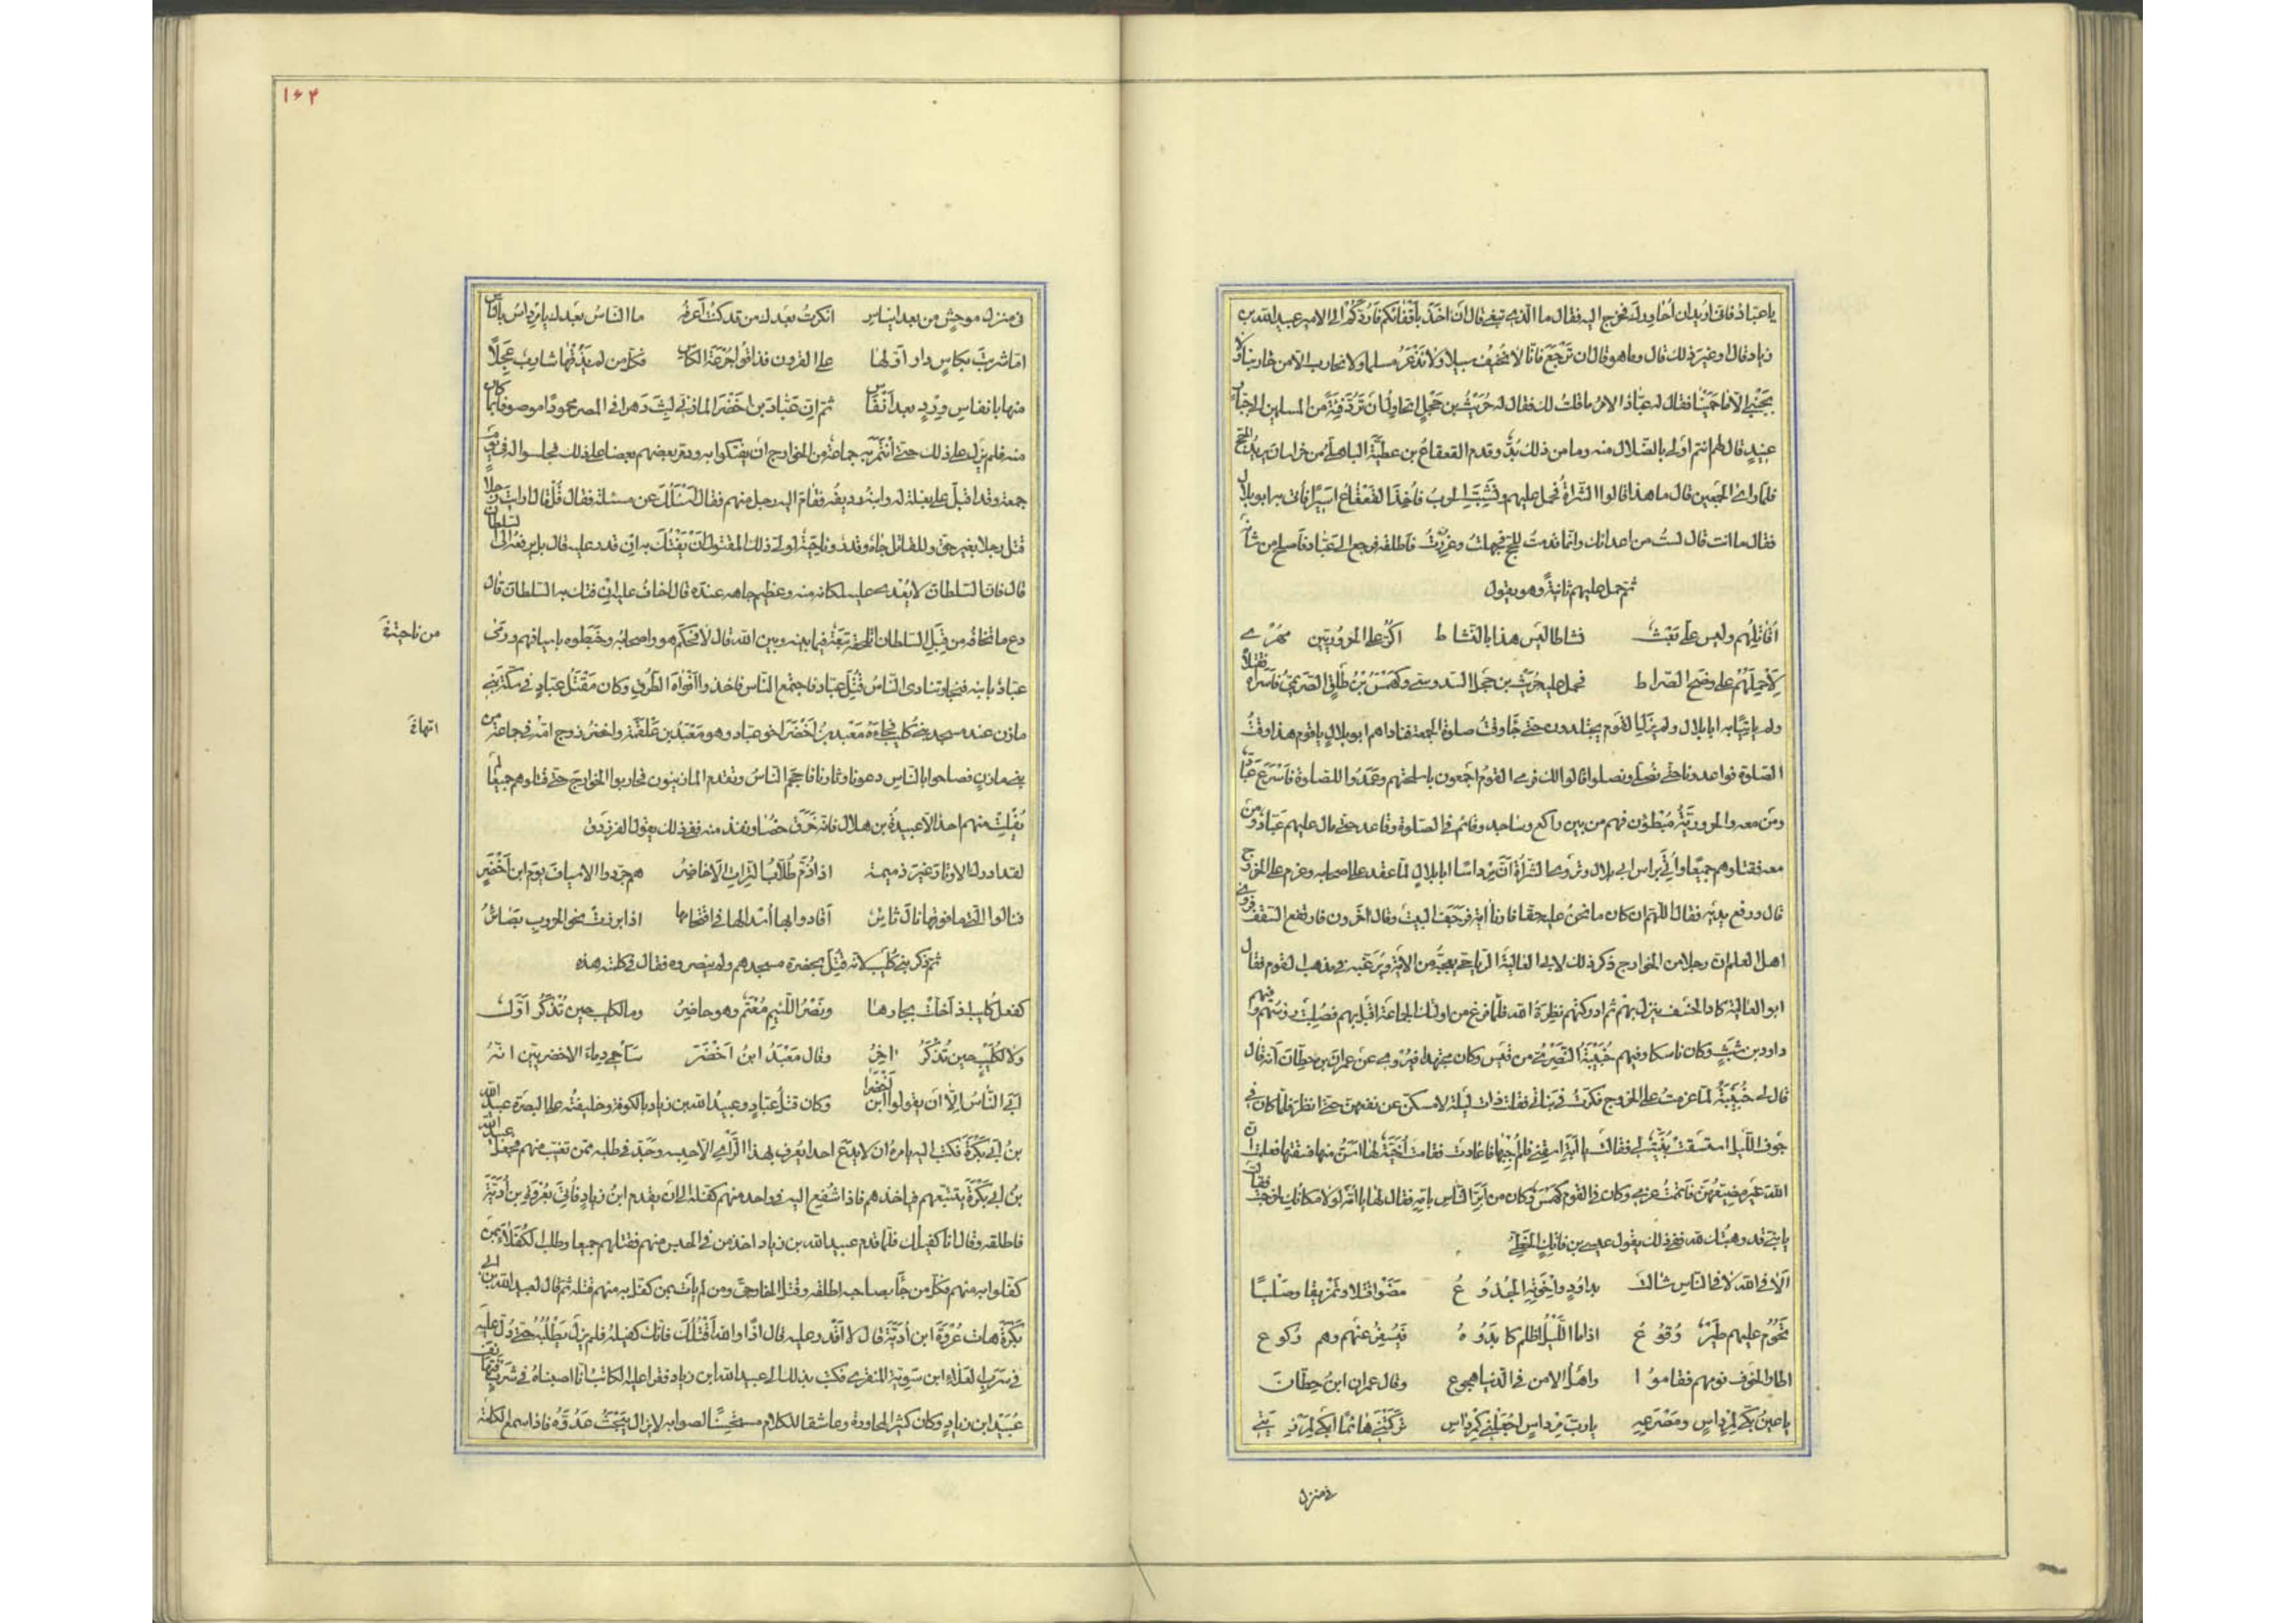 يا عباد فانى اريد ان احاورك فخرج اليه فقال ما الذى تبغى قال ان اخذ باقفائكم فاردكم الى الامير عبيد الله بن
زياد قال او غير ذلك قال وما هو قال ان ترجع فانا لا نخيف سبيلا ولا نذعر مسلما ولا نحارب الا من حاربنا ولا
نجبى الا ما حمينا فقال له عباد الامر ما قلت لك فقال له حريث بن حجل اتحاول ان ترد فئة من المسلمين الى جبار
عنيد قال لهم انتم اولى بالضلال منه وما من ذلك بد وقدم القعقاع بن عطية الباهلى من خراسان يريد الحج
فلما راى الجمعين قال ما هذا قالوا الشراة فحمل عليهم ونشبت الحرب فاخذ القعقاع اسيرا فاتى به ابو بلال
فقال ما انت قال لست من اعدائك وانما قدمت للحج فجهلت وغررت فاطلقه فرجع الى عباد فاصلح من شانه
ثم حمل عليهم ثانية وهو يقول
اقاتلهم وليس على بعث نشاطا ليس هذا بالنشاط اكر على الحروريين مهرى
لاحملهم على وضح الصراط فحمل عليه حريث بن حجل السدوسى وكهمس بن طلق الصريمى فاسراه فقتلاه
ولم ياتيا به ابا بلال ولم يزل القوم يجتلدون حتى جا وقت صلوة الجمعة فناداهم ابو بلال يا قوم هذا وقت
الصلوة فوادعونا حتى نصلى وتصلوا قالوا لك فرمى القوم اجمعون باسلحتهم وعمدوا للصلوة فاسرع عباد
ومن معه والحرورية مبطؤن فهم من بين راكع وساجد وقائم فى الصلوة وقاعد حتى مال عليهم عباد ومن
معه فقتلوهم جميعا واتى براس ابى بلال وتروى الشراة ان مرداسا ابا بلال لما عقد على اصحابه وعزم على الخروج
قال ورفع يديه فقال اللهم ان كان ما نحن عليه حقا فارنا اية فرجف البيت وقال اخرون فارتفع السقف فروى
اهل العلم ان رجلا من الخوارج ذكر ذلك لابى العالية الرياحى يعجبه من الاية ويرغبه فى مذهب القوم فقال
ابو العالية كاد الخسف ينزل بهم ثم ادركتهم نظرة الله فلما فرغ من اولئك الجماعة اقبل بهم فصلبت رؤسهم وفيهم
داود بن شبث وكان ناسكا وفيهم خبيئة النصرى من قيس وكان مجتهدا فيروى عن عمران بن حطان انه قال
قال لى خبيئة لما عزمت على الخروج فكرت فى بناتى فقلت ذات ليلة لامسكن عن تفقدهن حتى انظر فلما كان فى
جوف الليل استسقت بنية لى فقالت يا ابة اسقنى فلم اجبها فاعادت فقامت اخية لها اسن منها فسقتها فعلمت ان
الله غير مضيعهن فاتممت عزمى وكان فى القوم كهمس وكان من ابر الناس بامه فقال لها يا امه لولا مكانك لخرجت فقالت
يا بنى قد وهبتك لله ففى ذلك يقول عيسى بن فاتك الخطى
الا فى الله لا فى الناس شالت بداود واخوته الجذوع مضوا قتلا وتمزيقا وصلبا
تحوم عليهم طير وقوع اذا ما الليل اظلم كابدوه فيسفر عنهم وهم ركوع
اطار الخوف نومهم فقاموا واهل الامن فى الدنيا هجوع وقال عمران ابن حطان
يا عين بكى لمرداس ومصرعه يا رب مرداس اجعلنى كمرداس تركتنى هائما ابكى لمرزئتى
فى منزل
۱۶۴
فى منزل موحش من بعد ايناس انكرت بعدك من قد كنت اعرفه ما الناس بعدك يا مرداس بالناس
اما شربت بكاس دار اولها على القرون فذاقوا جرعة الكاس فكل من لم يذقها شارب عجلا
منها بانفاس ورد بعد انفاس ثم ان عباد بن اخضر المازنى لبث دهرا فى المصر محمودا موصوفا بما كان
منه فلم يزل على ذلك حتى ائتمر به جماعة من الخوارج ان يفتكوا به وذمر بعضهم بعضا على ذلك فجلسوا له فى يوم
جمعة وقد اقبل على بغلة له وابنه رديفه فقام اليه رجل منهم فقال اسئلك عن مسئلة فقال قل قال ارايت رجلا
قتل رجلا بغير حق وللقاتل جاه وقدر وناحية اولى ذلك المقتول ان يفتك به ان قدر عليه قال بل يرفعه الى السلطان
قال فان السلطان لا يعدى عليه لمكانه منه وعظيم جاهه عنده قال اخاف عليه ان فتك به السلطان قال
دع ما تخافه من قبل السلطان اتلحقه تبعة فيما بينه وبين الله قال لا فحكم هو واصحابه وخبطوه باسيافهم ورمى
من ناحيته
عباد بابنه فنجا وتنادى الناس قتل عباد فاجتمع الناس فاخذوا افواه الطرق وكان مقتل عباد فى سكة بنى
مازن عند مسجد بنى كليب فجاءه معبد بن اخضر اخو عباد وهو معبد بن علقمة واخضر زوج امه فى جماعة من
بنى مازن فصاحوا بالناس دعونا وثارنا فاحجم الناس وتقدم المازنيون فحاربوا الخوارج حتى قتلوهم جميعا لم
يفلت منهم احد الا عبيدة بن هلال فانه خرق خصا ونفذ منه ففى ذلك يقول الفرزدق
لقد ادرك الاوتار غير ذميمة اذا ذم طلاب الترات الاخاضر هم جردوا الاسياف يوم ابن اخضر
فنالوا التى ما فوقها نال ثائر اقادوا بها اسدا لها فى اقتحامها اذا برزت نحو الحروب بصائر
ثم ذكر بنى كليب لانه قتل بحضرة مسجدهم ولم ينصروه فقال فى كلمته هذه
كفعل كليب اذ اخلت بجارها ونصر اللئيم معتم وهو حاضر وما لكليب حين تذكر اول
ولا لكليب حين تذكر اخر وقال معبد ابن اخضر ساحمى دماء الاخضريين انه
ابى الناس الا ان يقولوا ابن اخضرا وكان قتل عباد وعبيد الله بن زياد بالكوفة وخليفته على البصرة عبيد الله
بن ابى بكرة فكتب اليه يامره ان لا يدع احدا يعرف بهذا الراى الا حبسه وجد فى طلبه ممن تغيب منهم فجعل عبيد الله
بن ابى بكرة يتتبعهم فياخذهم فاذا شفع اليه فى واحد منهم كفله الى ان يقدم ابن زياد فاتى بعروة بن ادية
فاطلقه وقال انا كفيلك فلما قدم عبيد الله بن زياد اخذ من فى الحبس منهم فقتلهم جميعا وطلب الكفلاء بمن
كفلوا به منهم فكل من جاء بصاحبه اطلقه وقتل الخارجى ومن لم يات بمن كفل به منهم قتله ثم قال لعبيد الله بن ابى
بكرة هات عروة ابن ادية قال لا اقدر عليه قال اذا والله اقتلك فانك كفيله فلم يزل يطلبه حتى دل عليه
فى سرب العلاء ابن سوية المنقرى فكتب بذلك الى عبيد الله ابن زياد فقرا عليه الكاتب انا اصبناه فى شرب
عبيد ابن زياد وكان كثير المحاورة وعاشقا للكلام مستحسنا لصوابه لا يزال يبحث عن عذره فاذا سمع الكلمة